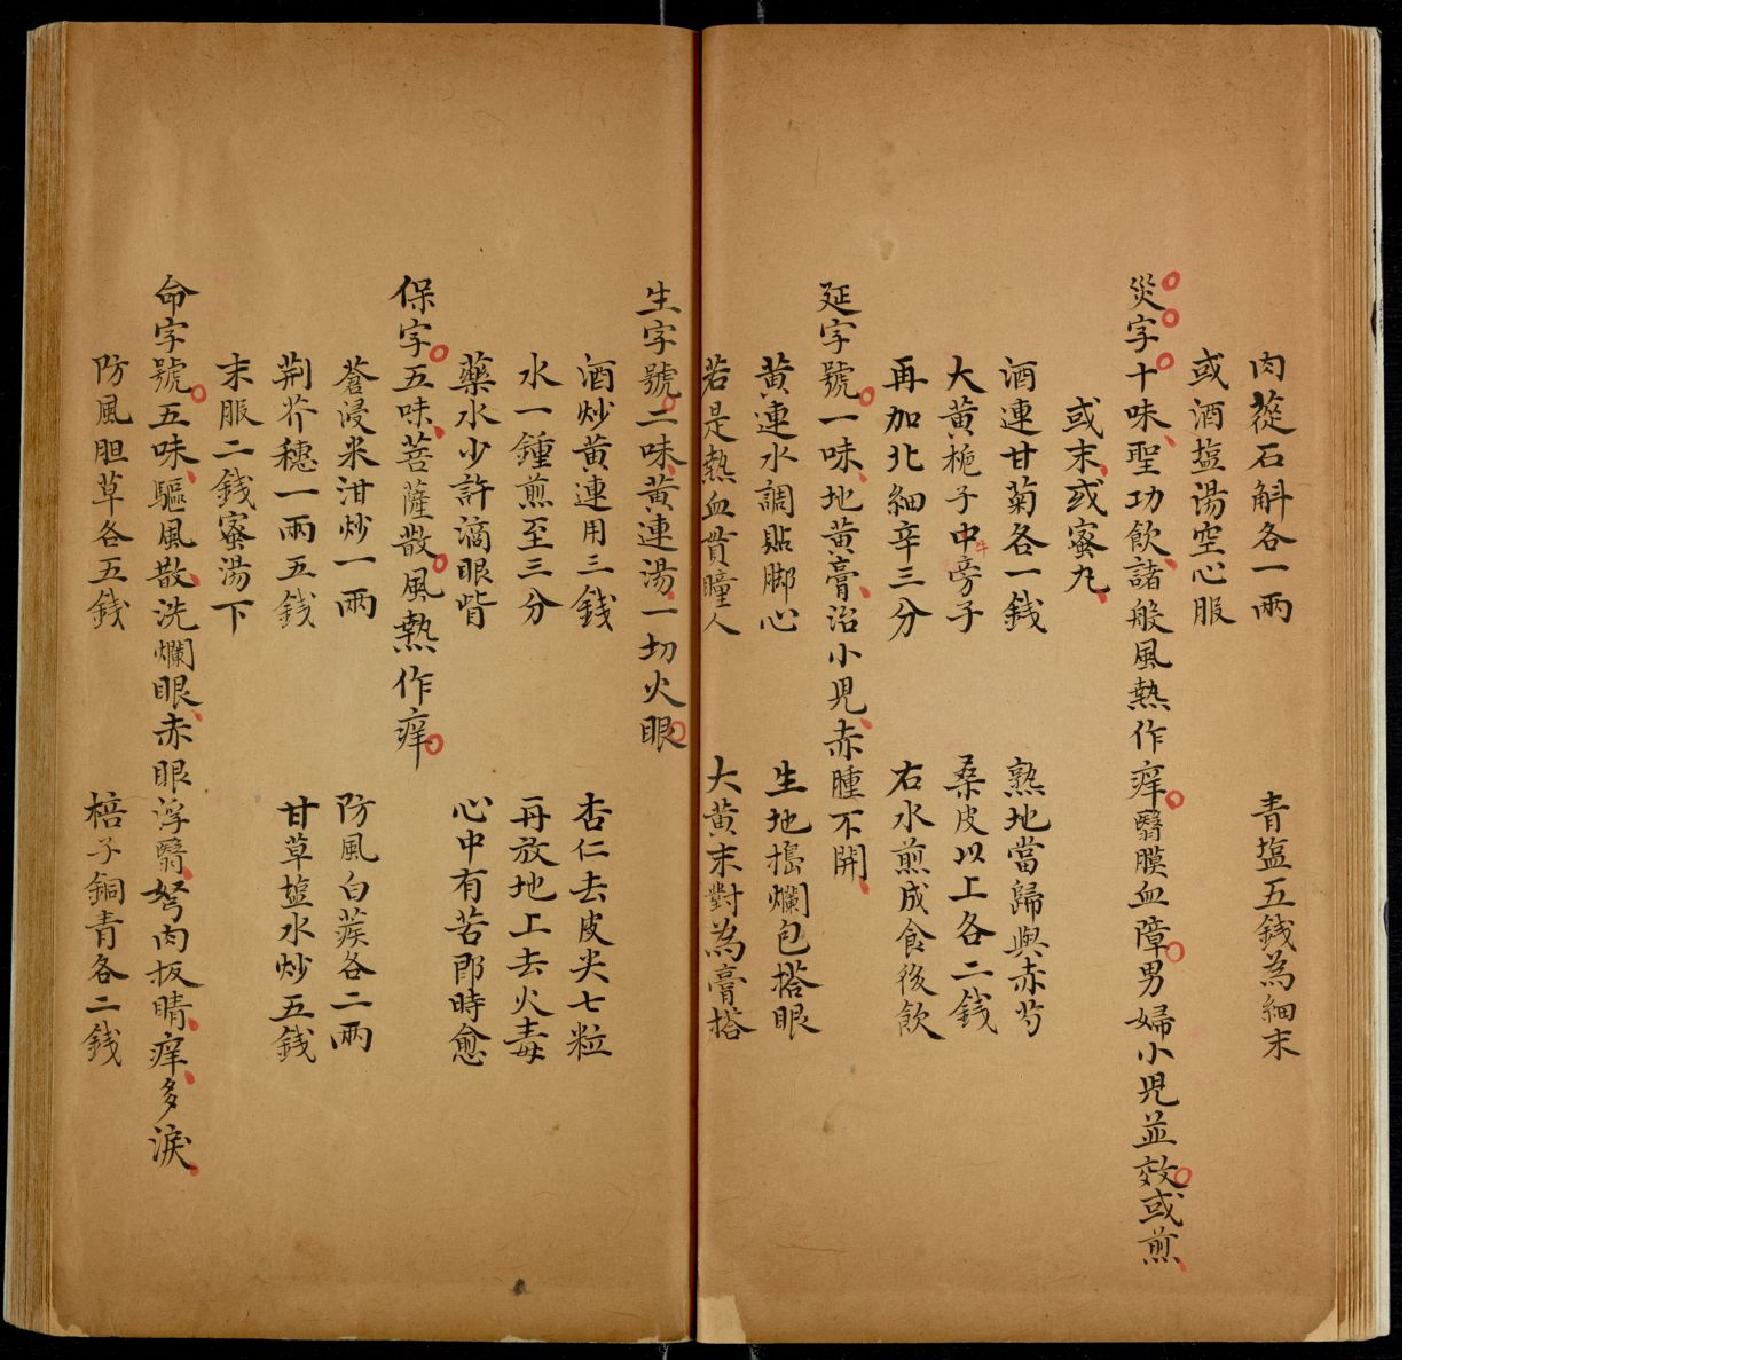 肉蓯石斛各一兩 青塩五銭為細末
或酒塩湯空心服
災字十味聖功飲諸般風熱作痒翳膜血障男婦小児並效或煎
或末或蜜丸
酒連甘菊各一銭 熟地當歸與赤芍
大黄梔子牛蒡子 桑皮以上各二銭
再加北細辛三分 右水煎成食後飲
延字號一味地黄膏治小児赤腫不開
黄連水調貼脚心 生地搗爛包搭眼
若是熱血貫瞳人 大黄末對為膏搭
生字號二味黄連湯一切火眼
酒炒黄連用三銭 杏仁去皮尖七粒
水一鍾煎至三分 再放地上去火毒
藥水少許滴眼眥 心中有苦即時愈
保字五味菩薩散風熱作痒
蒼浸米泔炒一兩 防風白蒺各二兩
荆芥穗一兩五銭 甘草塩水炒五銭
末服二銭蜜湯下
命字號五味驅風散洗爛眼赤眼浮翳弩肉扳睛痒多淚
防風胆草各五銭 棓子銅青各二銭